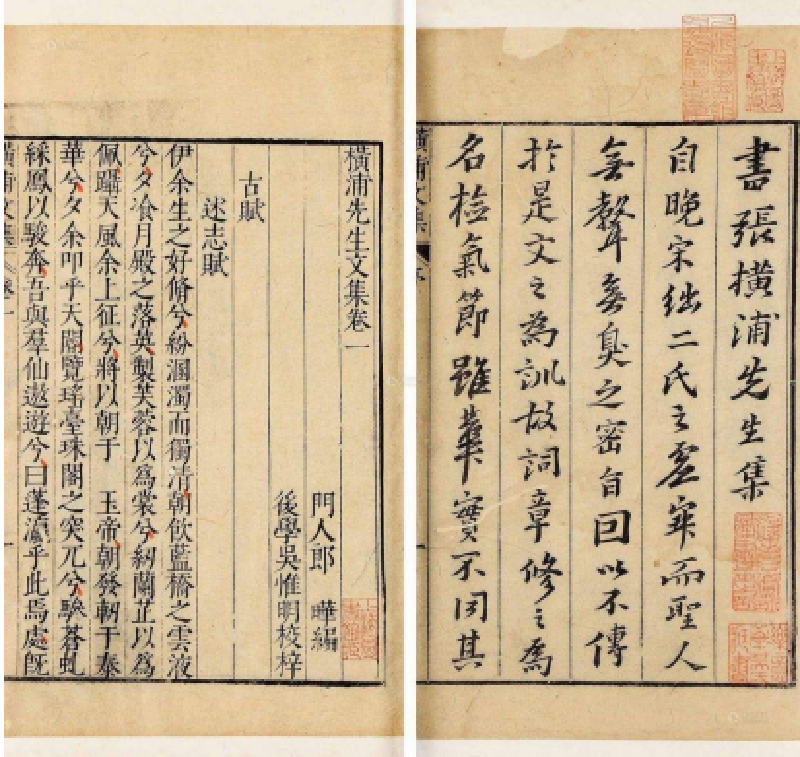 書張橫浦先生集
自晚宋絀二氏之虛寂而聖人
無聲無臭之密旨回以不傳
於是文之為訓故詞章修之為
名檢氣節雖華實不同其
橫浦文集
橫浦先生文集卷一
門人郎 曄編
後學吳惟明校梓
古賦
述志賦
伊余生之好脩兮紛溷濁而獨清朝飲藍橋之雲液
兮夕飡月殿之落英製芙蓉以為裳兮紉蘭芷以為
佩躡天風余上征兮將以朝于 玉帝朝發軔于泰
華兮夕余叩乎天閽覽瑤臺珠闕之突兀兮驂蒼虬
綵鳳以駿奔吾與羣仙遨遊兮曰蓬瀛乎此焉處既
橫浦文集 卷一 一